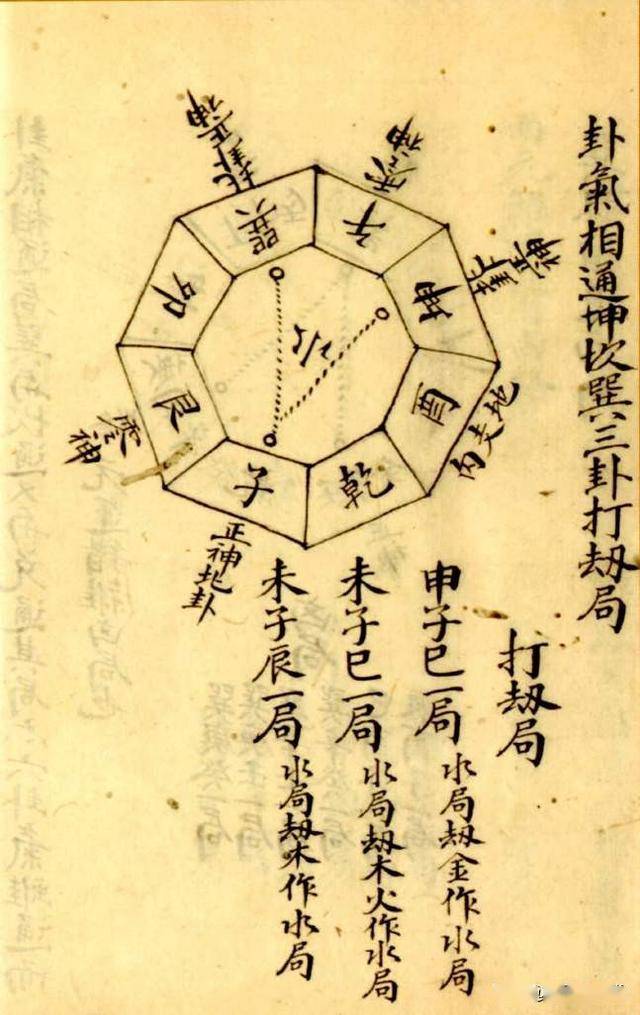 卦氣相通坤坎巽三卦打刼局
打刼局
申子巳一局 水局刼金作水局
未子巳一局 水局刼木火作水局
未子辰一局 水局刼木作水局
正神地卦
零神
正神地卦
零神
正神地卦
巽
午
坤
酉
乾
子
艮
卯
水